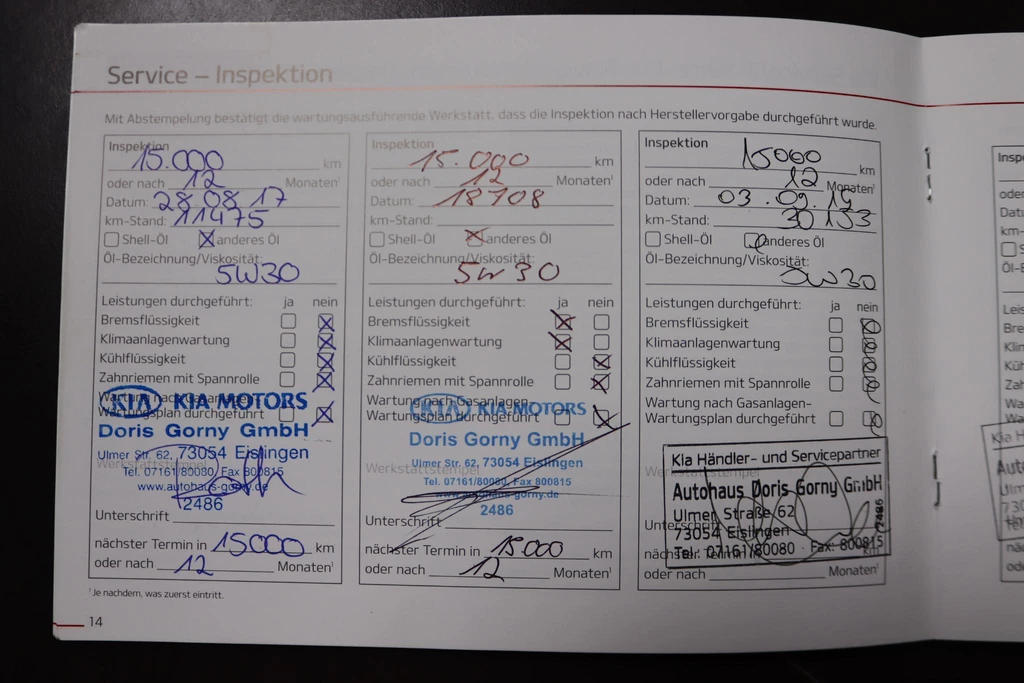 Service – Inspektion
Mit Abstempelung bestätigt die wartungsausführende Werkstatt, dass die Inspektion nach Herstellervorgabe durchgeführt wurde.
Inspektion
15.000 km
oder nach 12 Monaten¹
Datum: 28.08.17
km-Stand: 11475
Shell-Öl anderes Öl
Öl-Bezeichnung/Viskosität:
5W30
Leistungen durchgeführt: ja nein
Bremsflüssigkeit
Klimaanlagenwartung
Kühlflüssigkeit
Zahnriemen mit Spannrolle
Wartung nach Gasanlagen-
Wartungsplan durchgeführt
KIA KIA MOTORS
Doris Gorny GmbH
Ulmer Str. 62, 73054 Eislingen
Werkstattstempel
Tel. 07161/80080, Fax 800815
www.autohaus-gorny.de
2486
Unterschrift
nächster Termin in 15000 km
oder nach 12 Monaten¹
Inspektion
15.000 km
oder nach 12 Monaten¹
Datum: 18708
km-Stand:
Shell-Öl anderes Öl
Öl-Bezeichnung/Viskosität:
5W30
Leistungen durchgeführt: ja nein
Bremsflüssigkeit
Klimaanlagenwartung
Kühlflüssigkeit
Zahnriemen mit Spannrolle
Wartung nach Gasanlagen-
Wartungsplan durchgeführt
KIA KIA MOTORS
Doris Gorny GmbH
Ulmer Str. 62, 73054 Eislingen
Werkstattstempel
Tel. 07161/80080, Fax 800815
www.autohaus-gorny.de
2486
Unterschrift
nächster Termin in 15000 km
oder nach 12 Monaten¹
Inspektion
15000 km
oder nach 12 Monaten¹
Datum: 03.09.19
km-Stand: 30153
Shell-Öl anderes Öl
Öl-Bezeichnung/Viskosität:
5W30
Leistungen durchgeführt: ja nein
Bremsflüssigkeit
Klimaanlagenwartung
Kühlflüssigkeit
Zahnriemen mit Spannrolle
Wartung nach Gasanlagen-
Wartungsplan durchgeführt
Kia Händler- und Servicepartner
Werkstattstempel
Autohaus Doris Gorny GmbH
Ulmer Straße 62
2486
Unterschrift
73054 Eislingen
Tel.: 07161/80080 · Fax: 800815
nächster Termin in km
oder nach Monaten¹
¹Je nachdem, was zuerst eintritt.
14